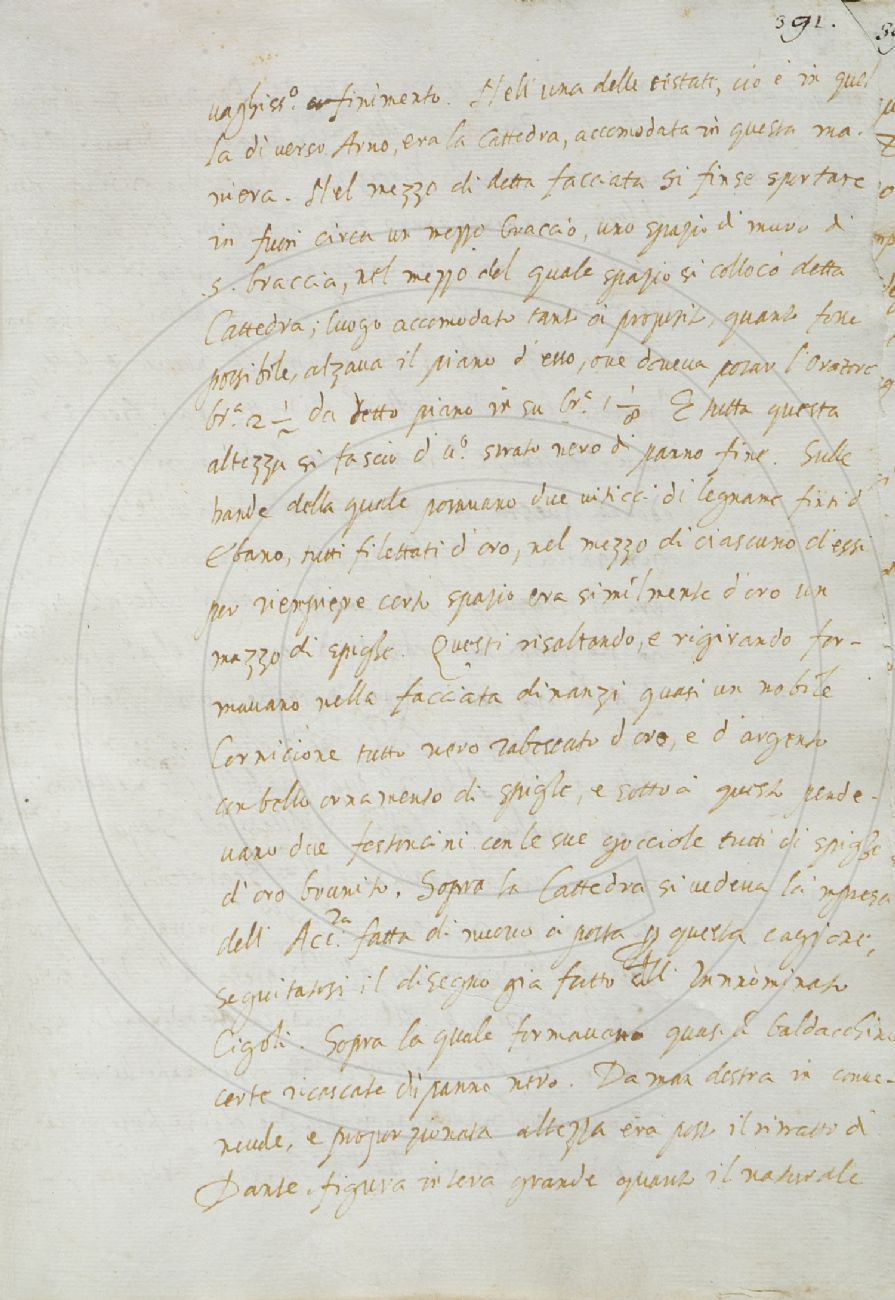 391.
vaghiss.º finimento. Nell'una delle testate, cio è in quel
la di verso Arno, era la Cattedra, accomodata in questa ma-
niera. Nel mezzo di detta facciata si finse sportare
in fuori circa un mezzo braccio, uno spazio di muro di
.5. braccia, nel mezzo del quale spazio si collocò detta
Cattedra; luogo accomodato tanto à proposito, quanto fosse
possibile, alzava il piano d'esso, ove doveva posar l'Oratore
br.ª 2 1/2 da detto piano in su br.ª 1 1/8 E tutta questa
altezza si fasciò d'uº. strato nero di panno fine. Sulle
bande della quale posavano due viticci di legname finti d'
Ebano, tutti filettati d'oro, nel mezzo di ciascuno d'essi
per riempiere certo spazio era similmente d'oro un
mazzo di spighe. Questi risaltando, e rigirando for-
mavano nella facciata dinanzi quasi un nobile
Cornicione tutto nero rabescato d'oro, e d'argento
con bello ornamento di spighe, e sotto à questo pende-
vano due festoncini con le sue gocciole tutti di spighe
d'oro brunito. Sopra la Cattedra si vedeva la impresa
dell'Acc.ia fatta di nuovo à posta p questa cagione,
seguitatosi il disegno già fatto dall'Innominato
Cigoli. Sopra la quale formavano quasi ũ baldacchino
certe ricascate di panno nero. Da man destra in conve-
nevole, e proporzionata altezza era posto il ritratto di
Dante figura intera grande quanto il naturale